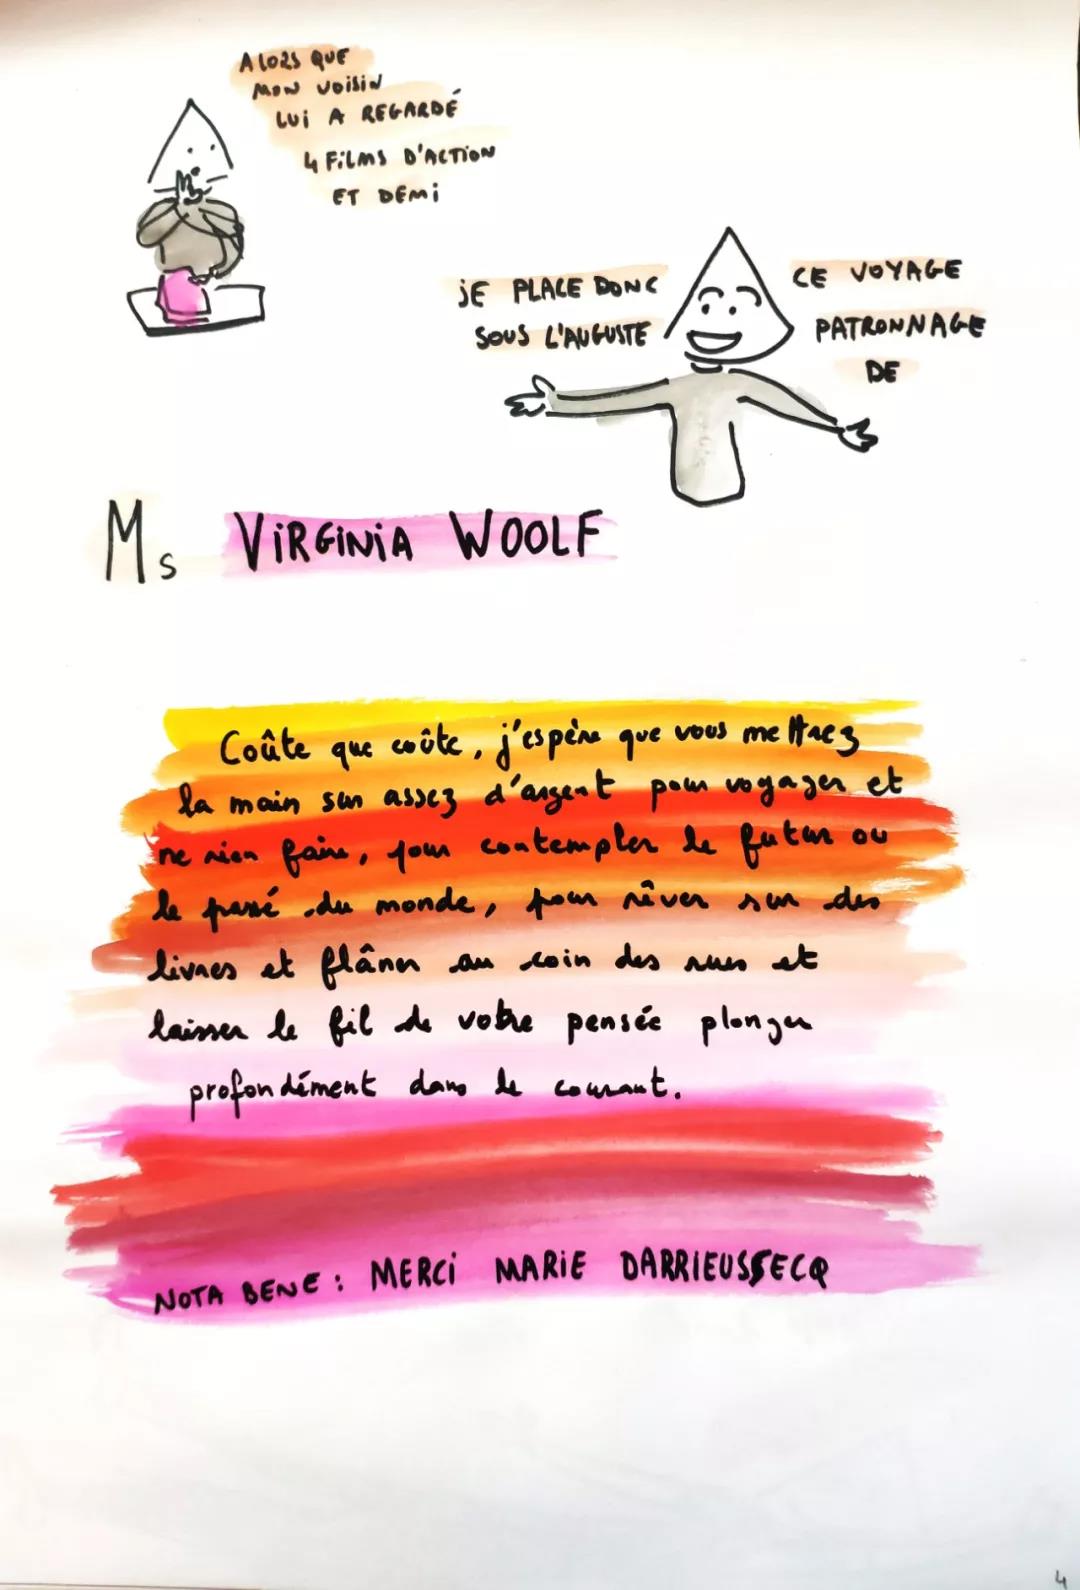 ALORS QUE
MON VOISIN
LUI A REGARDÉ
4 FILMS D'ACTION
ET DEMI
JE PLACE DONC
SOUS L'AUGUSTE
CE VOYAGE
PATRONNAGE
DE
Ms VIRGINIA WOOLF
Coûte que coûte, j'espère que vous mettrez
la main sur assez d'argent pour voyager et
ne rien faire, pour contempler le futur ou
le passé du monde, pour rêver sur des
livres et flâner au coin des rues et
laisser le fil de votre pensée plonger
profondément dans le courant.
NOTA BENE : MERCI MARIE DARRIEUSSECQ
4